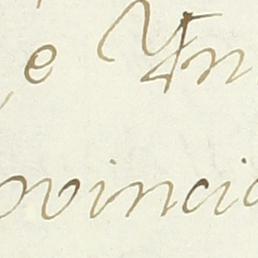 e Yn
ovincia